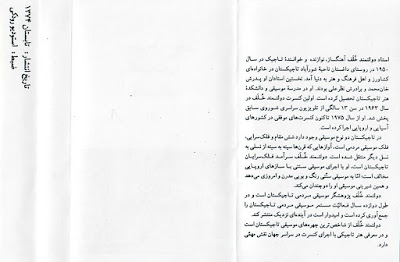 استاد دولتمند خُلُف آهنگساز، نوازنده و خوانندهٔ تاجیک در سال
۱۹۵۰ در روستای داغستان ناحیهٔ شورآباد تاجیکستان در خانواده‌ای
کشاورز و اهل فرهنگ و هنر به دنیا آمد. نخستین استادان او پدرش
خان‌محمد و برادرش نظرعلی بودند. او در مدرسهٔ موسیقی و دانشکدهٔ
هنر تاجیکستان تحصیل کرده است. اولین کنسرت دولتمند خُلُف در
سال ۱۹۶۳ در سن ۱۳ سالگی از تلویزیون سراسری شوروی سابق
پخش شد. او از سال ۱۹۷۵ تاکنون کنسرت‌های موفقی در کشورهای
آسیایی و اروپایی اجرا کرده است.
در تاجیکستان دو نوع موسیقی وجود دارد شش مقام و فلک‌سرایی.
فلک موسیقی مردمی است. آوازهایی که قرن‌ها سینه به سینه از نسلی به
نسل دیگر منتقل شده است. دولتمند خُلُف سرآمد فلک‌سرایان
تاجیکستان است. او با اجرای موسیقی سنتی با سازهای اروپایی
مخالف است؛ امّا به موسیقی سنّتی رنگ و بویی مدرن و امروزی می‌دهد
و همین شیرینی موسیقی او را دوچندان می‌کند.
دولتمند خُلُف پژوهشگر موسیقی مردمی تاجیکستان است و در
طول دوازده سال فعالیّت مستمر موسیقی مردمی تاجیکستان را
جمع‌آوری کرده است و امیدوار است در آینده‌ای نزدیک منتشر کند.
دولتمند خُلُف از شاخص‌ترین چهره‌های موسیقی تاجیکستان است
و در معرفی هنر تاجیکی با اجرای کنسرت در سراسر جهان نقش مهمّی
دارد.
تاریخ انتشار : تابستان ۱۳۷۴
ضبط : استودیو رودکی